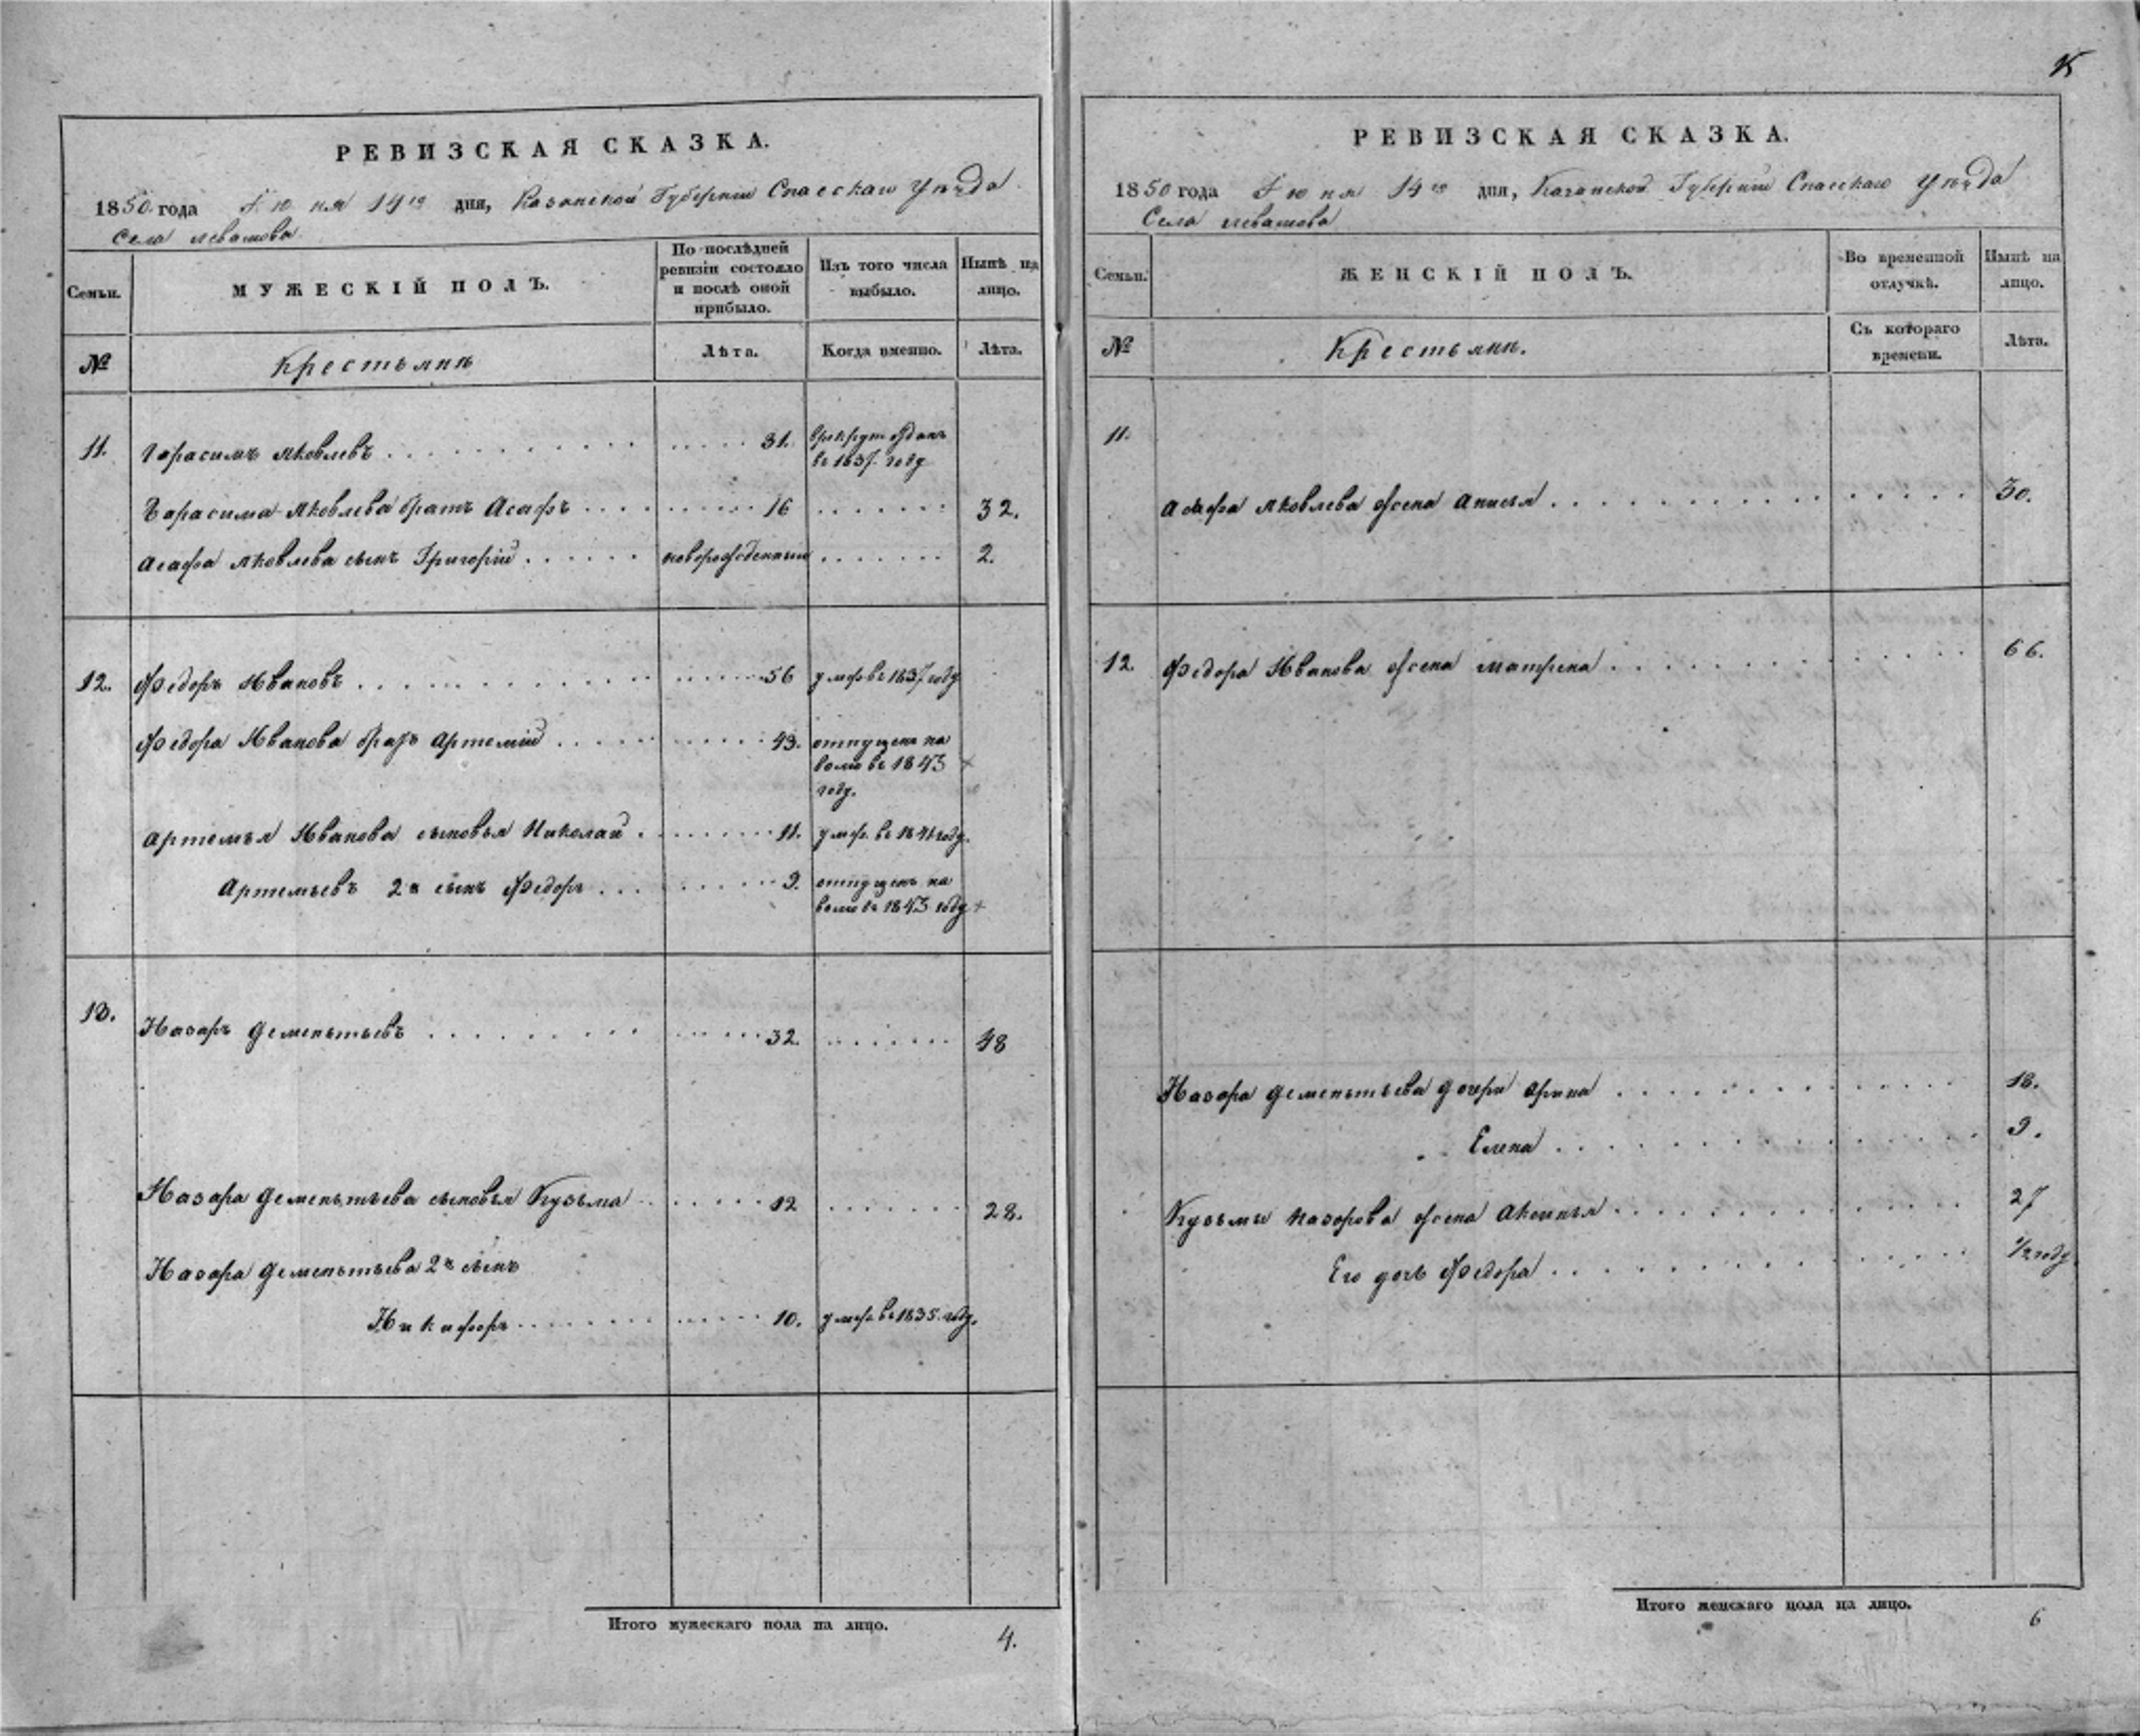 РЕВИЗСКАЯ СКАЗКА.
1850 года Июня 14го дня, Казанской Губернии Спасскаго Уѣзда
Села Левашова
Семьи.
МУЖЕСКІЙ ПОЛЪ.
По послѣдней ревизіи состояло и послѣ оной прибыло.
Изъ того числа выбыло.
Нынѣ на лицо.
№
Крестьянѣ
Лѣта.
Когда именно.
Лѣта.
11. Гарасимъ Яковлевъ . . . . . 31. врекруты отданъ
въ 1837. году
Гарасима Яковлева братъ Асафъ . . . . . 16 . . . . . 32.
Асафа Яковлева сынъ Григорій . . . . . новорожденный . . . . . 2.
12. Федоръ Ивановъ . . . . . 56 умер въ 1837 году
Федора Иванова братъ Артемій . . . . . 43. отпущенъ на
волю въ 1843
году.
Артемья Иванова сыновья Николай . . . . . 11. умер. въ 1841 году.
Артемьевъ 2й сынъ Федоръ . . . . . 9. отпущенъ на
волю въ 1843 году
13. Назаръ Дементьевъ . . . . . 32. . . . . . 48
Назара Дементьева сыновья Кузьма . . . . . 12 . . . . . 28.
Назара Дементьева 2й сынъ
Никифоръ . . . . . 10. умер. въ 1835. году.
Итого мужескаго пола на лицо.
4.
РЕВИЗСКАЯ СКАЗКА.
1850 года Июня 14го дня, Казанской Губерніи Спасскаго Уѣзда
Села Левашова
Семьи.
ЖЕНСКІЙ ПОЛЪ.
Во временной отлучкѣ.
Нынѣ на лицо.
№
Крестьяни.
Съ котораго времени.
Лѣта.
11.
Асафа Яковлева жена Анисья . . . . . 30.
12. Федора Иванова жена Матрена . . . . . 66.
Назара Дементьева дочери Арина . . . . . 18.
Елена . . . . . 9.
Кузьмы Назарова жена Аксинья . . . . . 27
Его дочь Федора . . . . . 1/2 году.
Итого женскаго пола на лицо.
6